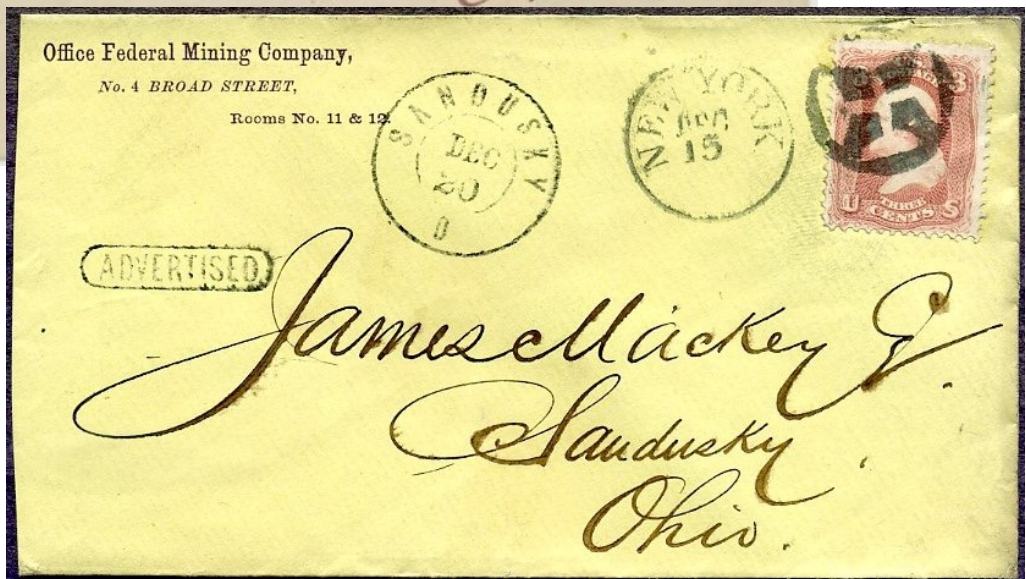 Office Federal Mining Company,
No. 4 BROAD STREET,
Rooms No. 11 & 12.
SANDUSKY
DEC
20
O
NEW YORK
DEC
15
3
U THREE S
CENTS
ADVERTISED
James Mackey
Sandusky
Ohio.